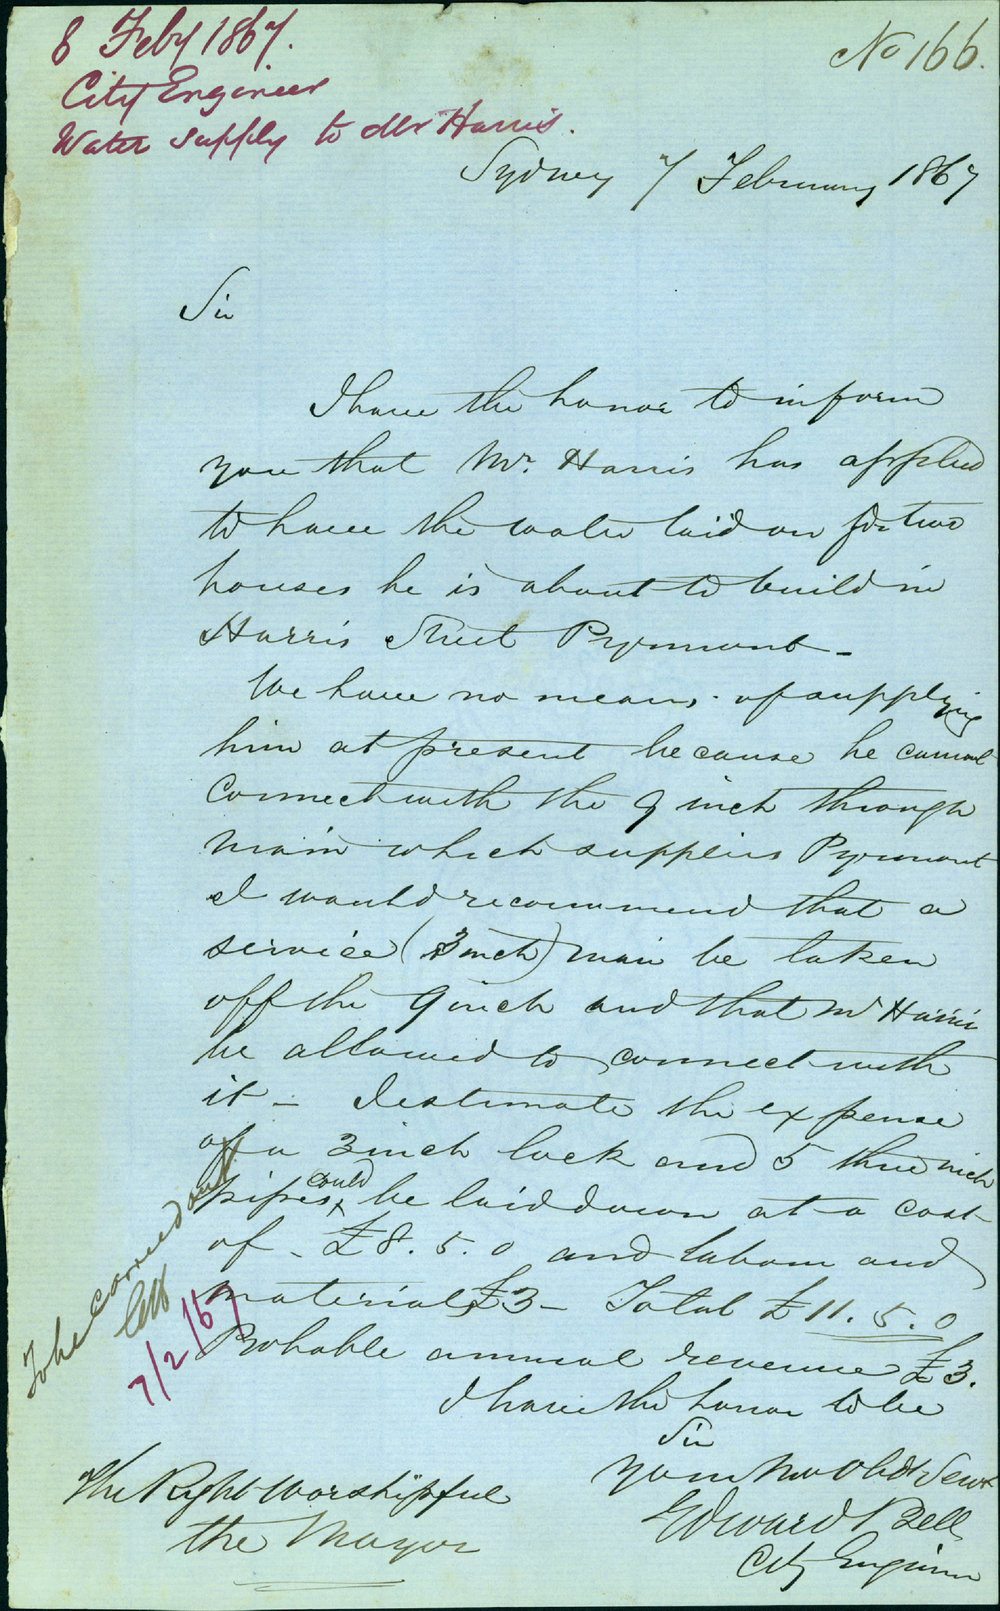 8 Feby 1867.
City Engineer
Water supply to Mr Harris.
No 166.
Sydney 7 February 1867
Sir
I have the honor to inform
you that Mr. Harris has applied
to have the water laid on for two
houses he is about to build in
Harris Street Pyrmont -
We have no means of supplying
him at present because he cannot
connect with the 9 inch through
main which supplies Pyrmont
I would recommend that a
service (3 inch) main be taken
off the 9 inch and that Mr Harris
be allowed to connect with
it - I estimate the expense
of a 3 inch lock and 5 three inch
pipes could be laid down at a cost
of - £8. 5. 0 and labour and
material £3 - Total £11. 5. 0
Probable annual revenue £3.
I have the honor to be
Sir
Your Mo Obdt Servt
Edward Bell
City Engineer
The Right Worshipful
the Mayor
To be carried out
7/2/67